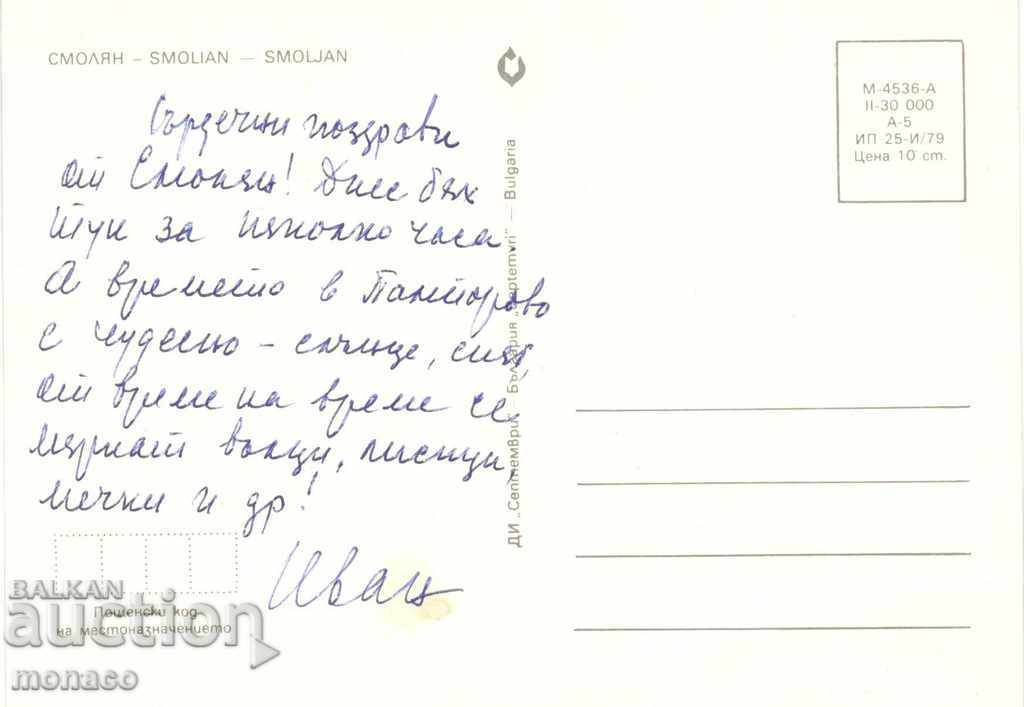 СМОЛЯН - SMOLIAN - SMOLJAN
М-4536-А
II-30 000
А-5
ИП 25-И/79
Цена 10 ст.
Сърдечни поздрави
от Смолян! Днес бях
тук за няколко часа.
А времето в Пампорово
е чудесно - слънце, сняг,
от време на време се
мяркат вълци, лисици,
мечки и др!
Иван
ДИ „Септември" - България „Septemvri" - Bulgaria
Пощенски код
на местоназначението
BALKAN
auction
monaco